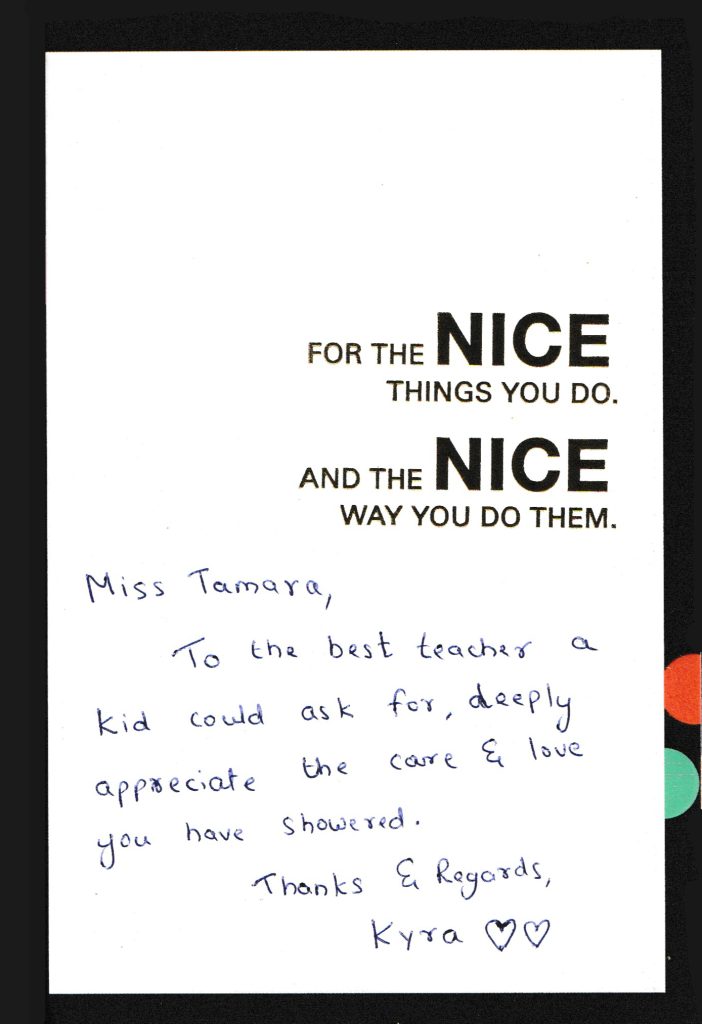 FOR THE NICE
THINGS YOU DO.
AND THE NICE
WAY YOU DO THEM.
Miss Tamara,
To the best teacher a
kid could ask for, deeply
appreciate the care & love
you have showered.
Thanks & Regards,
Kyra ♡♡